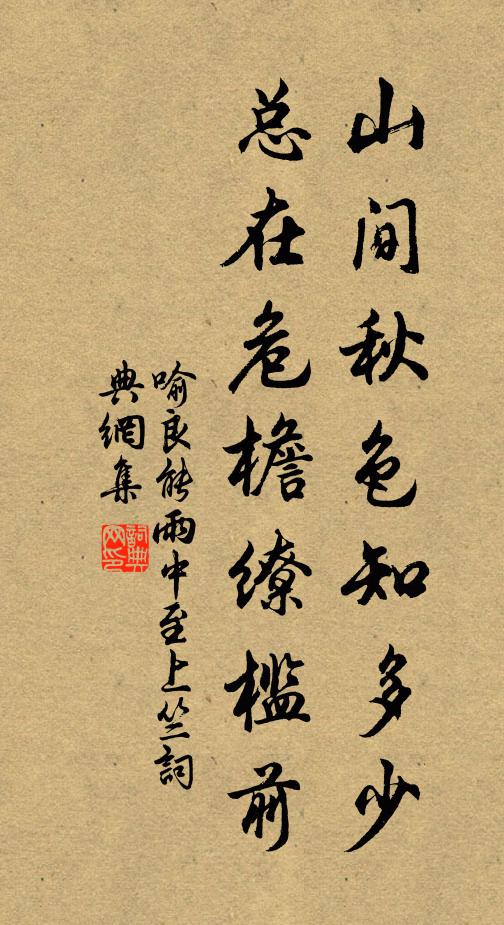 山间秋色知多少
总在危檐缭槛前
喻良能雨中至上竺詞
典網集
詞典網印